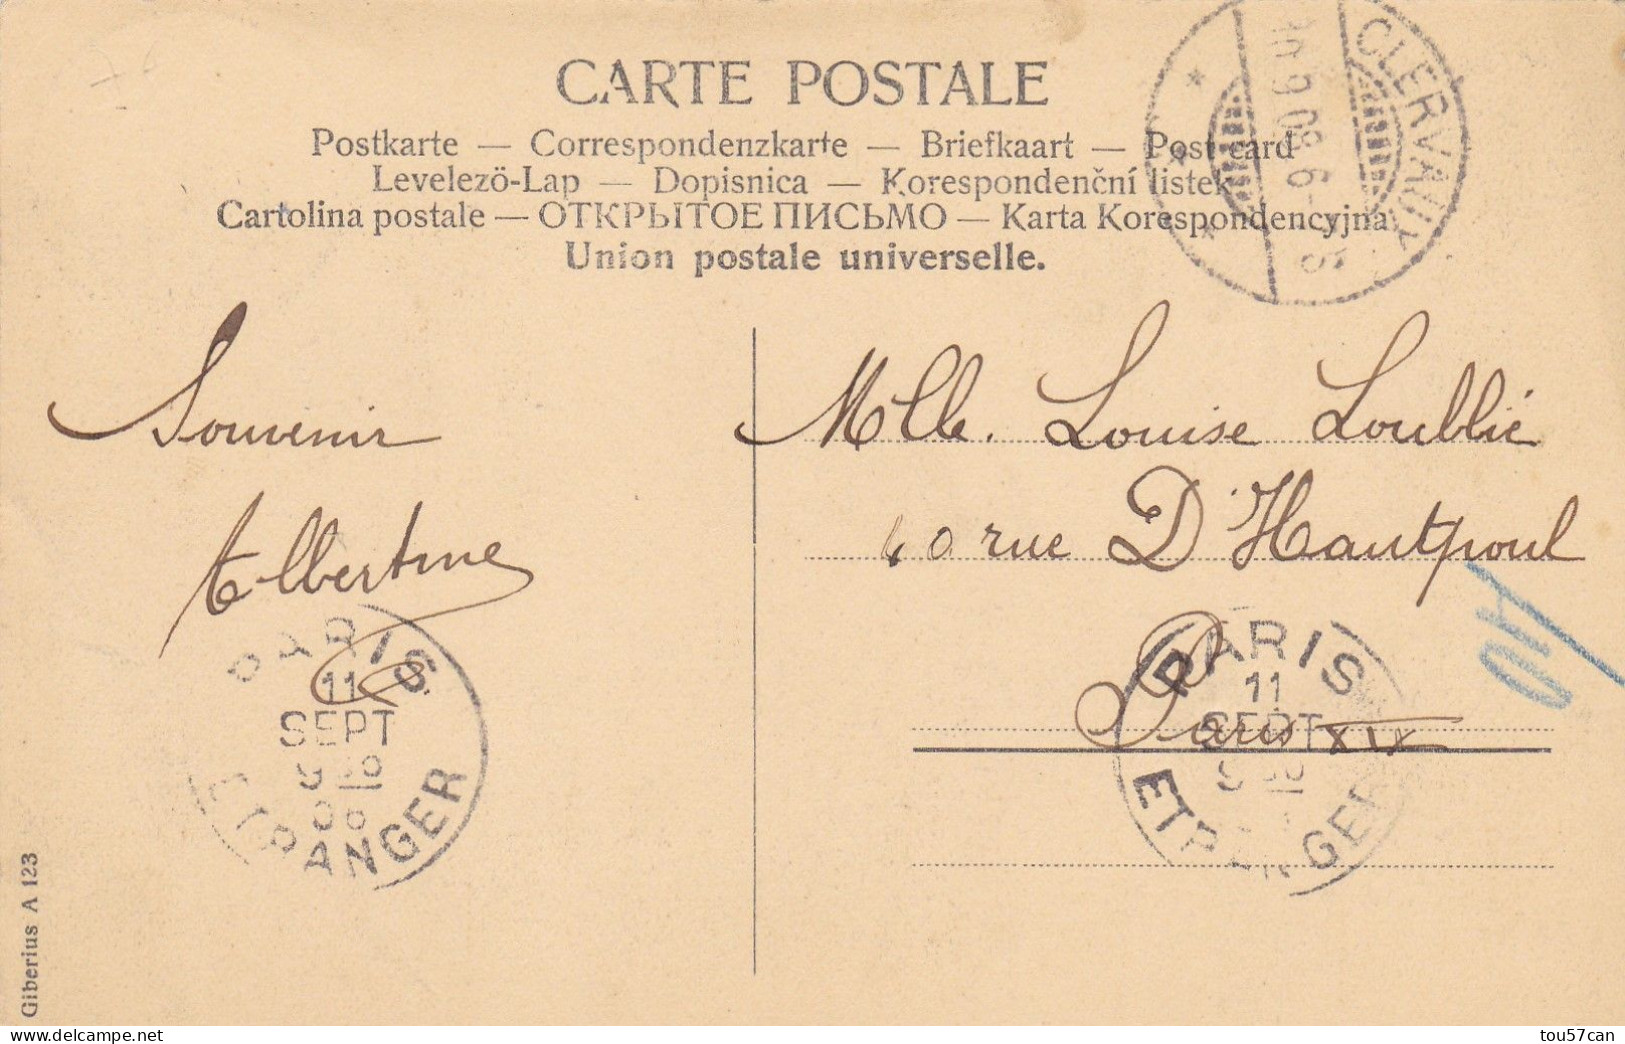 CARTE POSTALE
Postkarte — Correspondenzkarte — Briefkaart — Post card
Levelezö-Lap — Dopisnica — Korespondenční listek
Cartolina postale — ОТКРЫТОЕ ПИСЬМО — Karta Korespondencyjna
Union postale universelle.
CLERVAUX
Souvenir
Albertine
Mlle. Louise Loublié
40 rue D'Hautpoul
Paris XIX
PARIS
11
SEPT
06
ETRANGER
PARIS
11
SEPT
ETRANGER
Giberius A 123
tou57can